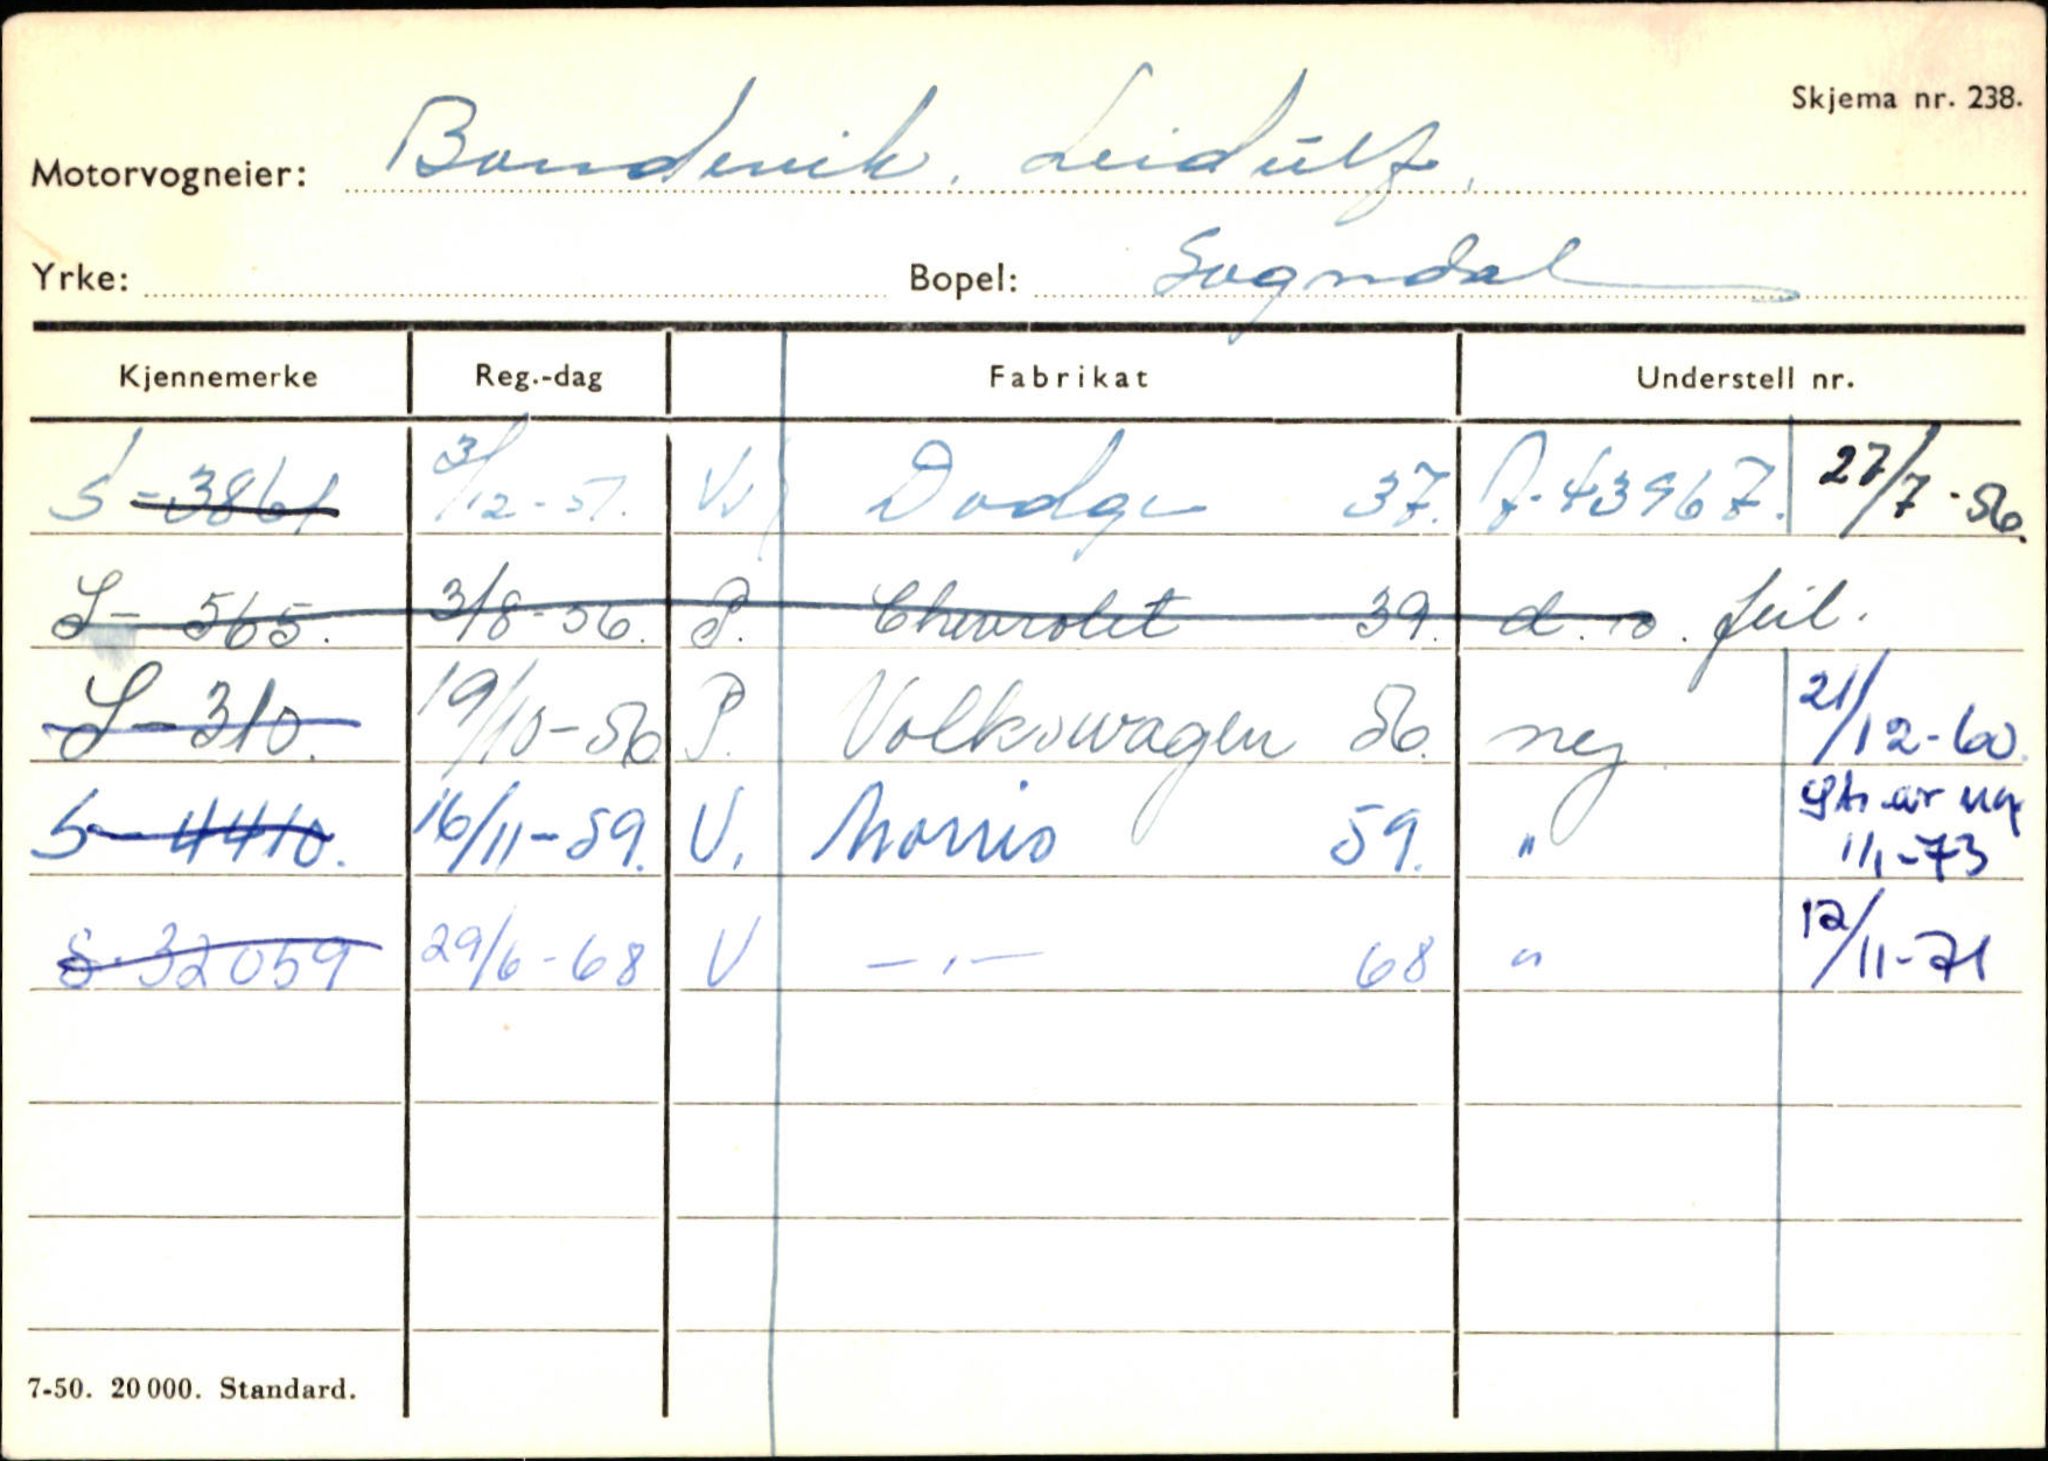 Skjema nr. 238.
Motorvogneier: Bondevik, Leidulf.
Yrke: Bopel: Sogndal
Kjennemerke Reg.-dag Fabrikat Understell nr.
S-3861 3/12-51. V. Dodge 37. 7-43967. 27/7-56.
S-565. 3/8-56. P. Chevrolet 39. d. o. feil.
S-310. 19/10-56 P. Volkswagen 56. nej. 21/12-60.
S-4410. 16/11-59. V. Morris 59. " 1/1-73
S-32059 29/6-68 V —"— 68 " 12/11-71
7-50. 20 000. Standard.